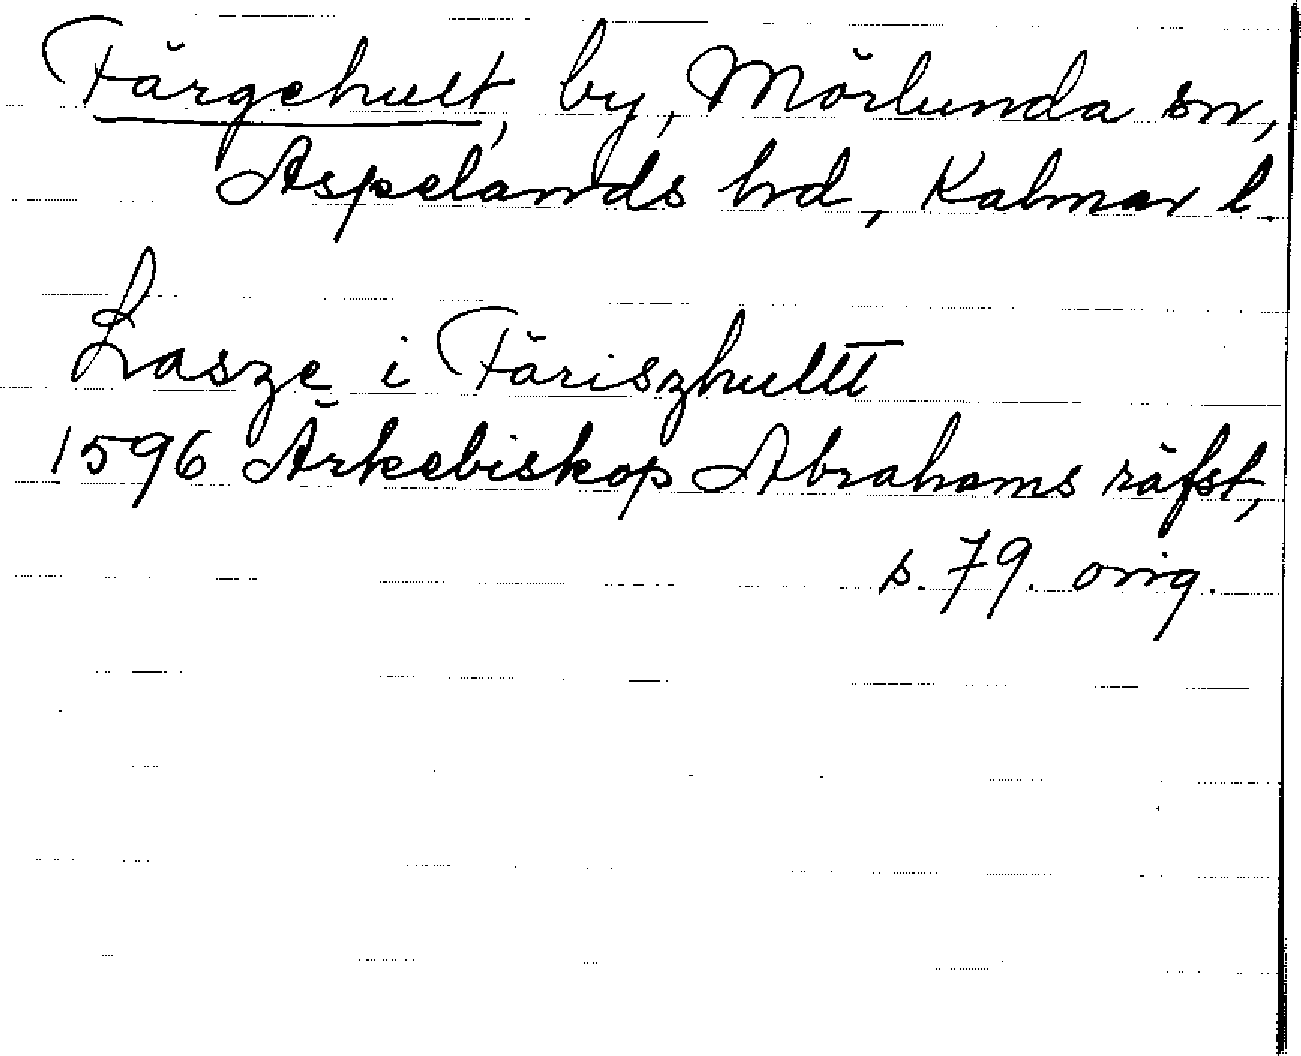 Färgehult, by, Mörlunda sn,
Aspelands hd, Kalmar l.
Lasze i Färiszhultt
1596 Ärkebiskop Abrahams räfst,
s. 79. orig.